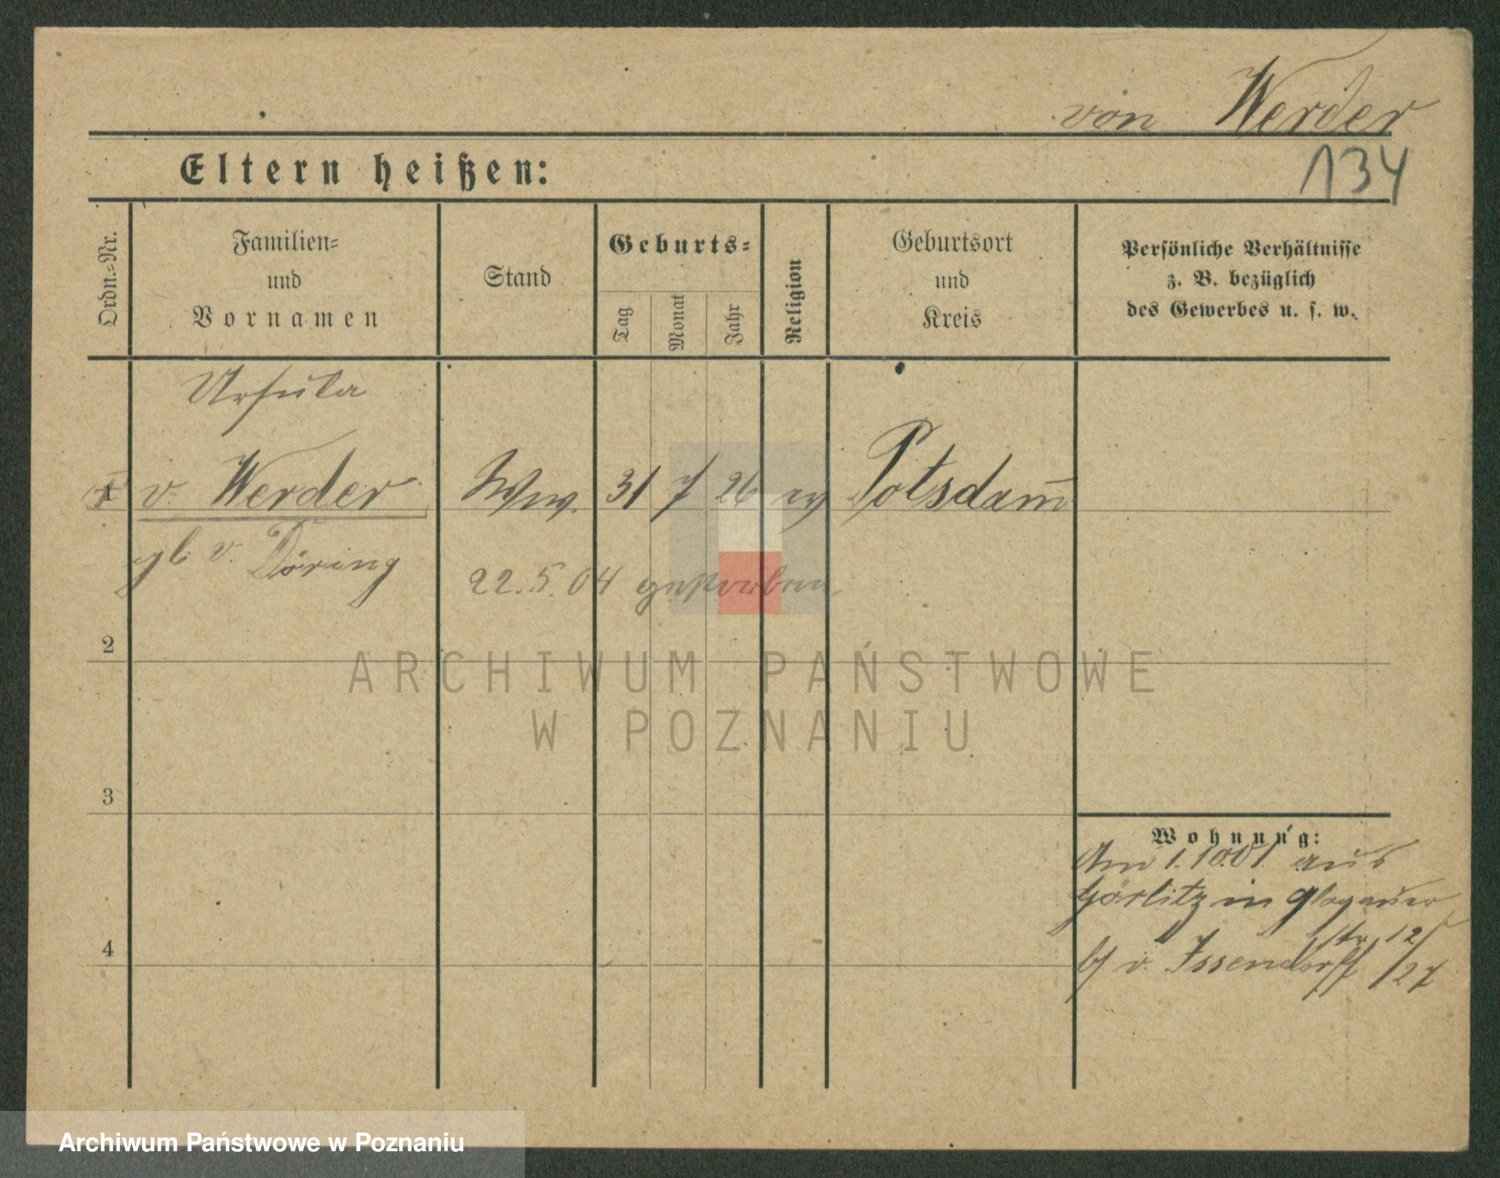 von Werder
134
Eltern heißen:
Ordn.-Nr.
Familien-
und
Vornamen
Stand
Geburts-
Tag
Monat
Jahr
Religion
Geburtsort
und
Kreis
Persönliche Verhältnisse
z. B. bezüglich
des Gewerbes u. s. w.
Ursula
1 v. Werder Ww. 31 7 26 ev Potsdam
gb v. Döring
22.5.04 gestorben
2
ARCHIWUM PAŃSTWOWE
W POZNANIU
3
Wohnung:
Am 1.10.01 aus
Görlitz in Glogauer
str. 12
4
b/ v. Issendorff /27
Archiwum Państwowe w Poznaniu